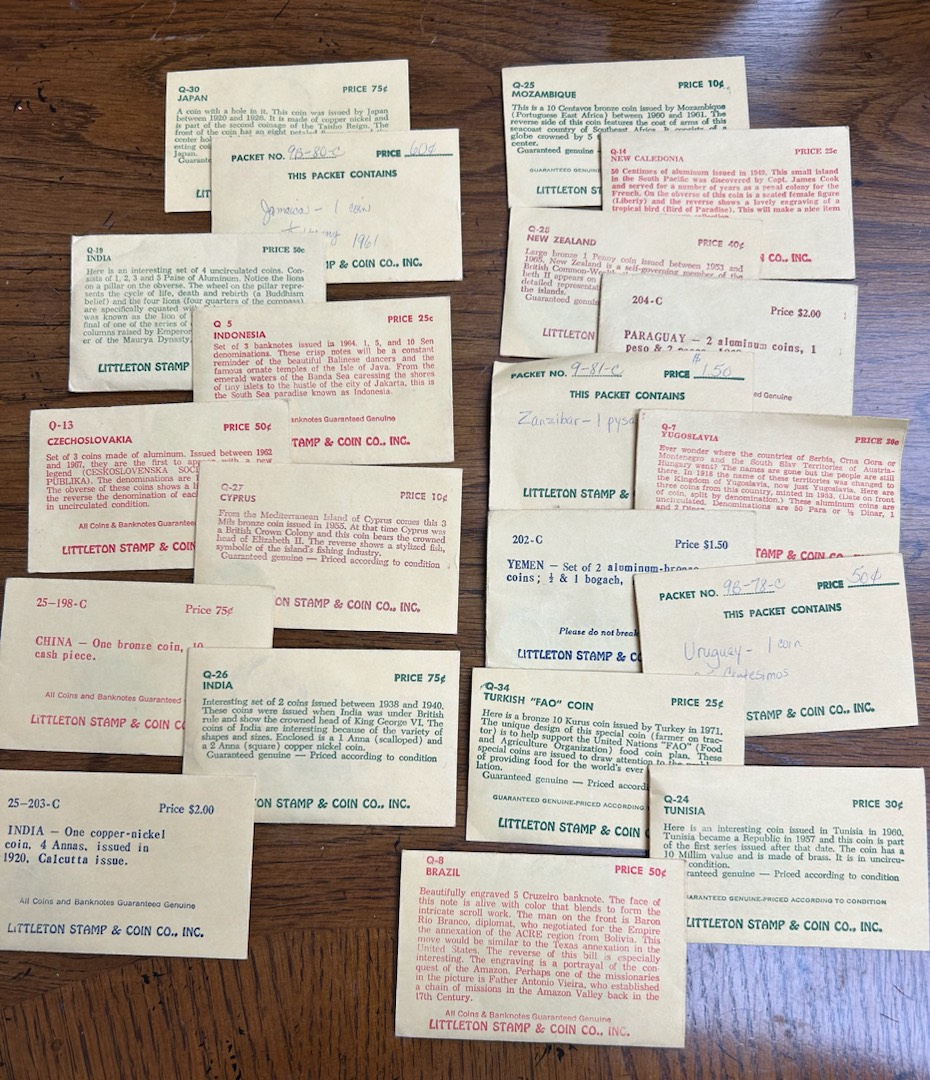 Q-30 PRICE 75¢
JAPAN
A coin with a hole in it. This coin was issued by Japan
between 1920 and 1926. It is made of copper nickel and
is part of the second coinage of the Taisho Reign. The
front of the coin has an eight
center
Japan.
PACKET NO. 9B-80-C PRICE 60¢
THIS PACKET CONTAINS
Jamaica - 1 coin
1961
& COIN CO., INC.
Q-19 PRICE 50c
INDIA
Here is an interesting set of 4 uncirculated coins. Con-
sists of 1, 2, 3 and 5 Paise of Aluminum. Notice the lion
on a pillar on the obverse. The wheel on the pillar repre-
sents the cycle of life, death and rebirth (a Buddhist
belief) and the four lions (four quarters of the compass)
are specifically equated with
was known as the lion of
final of one of the series of
columns raised by Emperor
er of the Maurya Dynasty,
LITTLETON STAMP
Q 5 PRICE 25c
INDONESIA
Set of 3 banknotes issued in 1964. 1, 5, and 10 Sen
denominations. These crisp notes will be a constant
reminder of the beautiful Balinese dancers and the
famous ornate temples of the Isle of Java. From the
emerald waters of the Banda Sea caressing the shores
of tiny inlets to the hustle of the city of Jakarta, this is
the South Sea paradise known as Indonesia.
Banknotes Guaranteed Genuine
STAMP & COIN CO., INC.
Q-13 PRICE 50¢
CZECHOSLOVAKIA
Set of 3 coins made of aluminum. Issued between 1962
and 1967, they are the first to with a new
legend (CESKOSLOVENSKA
PUBLIKA). The denominations are
The obverse of these coins shows a
the reverse the denomination of each
in uncirculated condition.
All Coins & Banknotes Guarantee
LITTLETON STAMP & COIN
Q-27 PRICE 10¢
CYPRUS
From the Mediterranean Island of Cyprus comes this 3
Mils bronze coin issued in 1955. At that time Cyprus was
a British Crown Colony and this coin bears the crowned
head of Elizabeth II. The reverse shows a stylized fish,
symbolic of the island's fishing industry.
Guaranteed genuine — Priced according to condition
ON STAMP & COIN CO., INC.
25—198-C Price 75¢
CHINA — One bronze coin, 10
cash piece.
All Coins and Banknotes Guaranteed
LITTLETON STAMP & COIN C
Q-26 PRICE 75¢
INDIA
Interesting set of 2 coins issued between 1938 and 1940.
These coins were issued when India was under British
rule and show the crowned head of King George VI. The
coins of India are interesting because of the variety of
shapes and sizes. Enclosed is a 1 Anna (scalloped) and
a 2 Anna (square) copper nickel coin.
Guaranteed genuine — Priced according to condition
ON STAMP & COIN CO., INC.
25—203-C Price $2.00
INDIA — One copper-nickel
coin, 4 Annas, issued in
1920, Calcutta issue.
All Coins and Banknotes Guaranteed Genuine
LITTLETON STAMP & COIN CO., INC.
Q-25 PRICE 10¢
MOZAMBIQUE
This is a 10 Centavos bronze coin issued by Mozambique
(Portuguese East Africa) between 1960 and 1961. The
reverse side of this coin features the coat of arms of this
seacoast country of Southeast Africa. It consists of a
globe crowned by 5
center.
Guaranteed genuine
GUARANTEED GENUIN
LITTLETON ST
Q-14 PRICE 25c
NEW CALEDONIA
50 Centimes of aluminum issued in 1949. This small island
in the South Pacific was discovered by Capt. James Cook
and served for a number of years as a penal colony for the
French. On the obverse of this coin is a seated female figure
(Liberty) and the reverse shows a lovely engraving of a
tropical bird (Bird of Paradise). This will make a nice item
CO., INC.
Q-28 PRICE 40¢
NEW ZEALAND
Large bronze 1 Penny coin issued between 1953 and
1965. New Zealand is a self-governing member of the
British Common-
beth II appears on
detailed
the islands.
Guaranteed genuine
LITTLETON
204-C Price $2.00
PARAGUAY — 2 aluminum coins, 1
peso & 2
ed Genuine
PACKET NO. 9-81-C PRICE $1.50
THIS PACKET CONTAINS
Zanzibar - 1 pysa
LITTLETON STAMP &
Q-7 PRICE 30c
YUGOSLAVIA
Ever wonder where the countries of Serbia, Crna Gora or
Montenegro and the South Slav Territories of Austria-
Hungary went? The names are gone but the people are still
there. In 1918 the name of these territories was changed to
the Kingdom of Yugoslavia, now just Yugoslavia. Here are
three coins from this country, minted in 1953. (Date on front
of coin, split by denomination.) These aluminum coins are
uncirculated. Denominations are 50 Para or ½ Dinar, 1
and 2
STAMP & COIN CO., INC.
202-C Price $1.50
YEMEN — Set of 2 aluminum-bronze
coins; ½ & 1 bogach,
Please do not break
LITTLETON STAMP & CO
PACKET NO. 9B-78-C PRICE 50¢
THIS PACKET CONTAINS
Uruguay - 1 coin
Centesimos
STAMP & COIN CO., INC.
Q-34 PRICE 25¢
TURKISH "FAO" COIN
Here is a bronze 10 Kurus coin issued by Turkey in 1971.
The unique design of this special coin (farmer on trac-
tor) is to help support the United Nations "FAO" (Food
and Agriculture Organization) food coin plan. These
special coins are issued to draw attention to the
of providing food for the world's ever
lation.
Guaranteed genuine — Priced accord
GUARANTEED GENUINE-PRICED ACCORDING
LITTLETON STAMP & COIN
Q-24 PRICE 30¢
TUNISIA
Here is an interesting coin issued in Tunisia in 1960.
Tunisia became a Republic in 1957 and this coin is part
of the first series issued after that date. The coin has a
10 Millim value and is made of brass. It is in uncircu-
condition.
ranteed genuine — Priced according to condition
ARANTEED GENUINE-PRICED ACCORDING TO CONDITION
LITTLETON STAMP & COIN CO., INC.
Q-8 PRICE 50¢
BRAZIL
Beautifully engraved 5 Cruzeiro banknote. The face of
this note is alive with color that blends to form the
intricate scroll work. The man on the front is Baron
Rio Branco, diplomat, who negotiated for the Empire
the annexation of the ACRE region from Bolivia. This
move would be similar to the Texas annexation in the
United States. The reverse of this bill is especially
interesting. The engraving is a portrayal of the con-
quest of the Amazon. Perhaps one of the missionaries
in the picture is Father Antonio Vieira, who established
a chain of missions in the Amazon Valley back in the
17th Century.
All Coins & Banknotes Guaranteed Genuine
LITTLETON STAMP & COIN CO., INC.